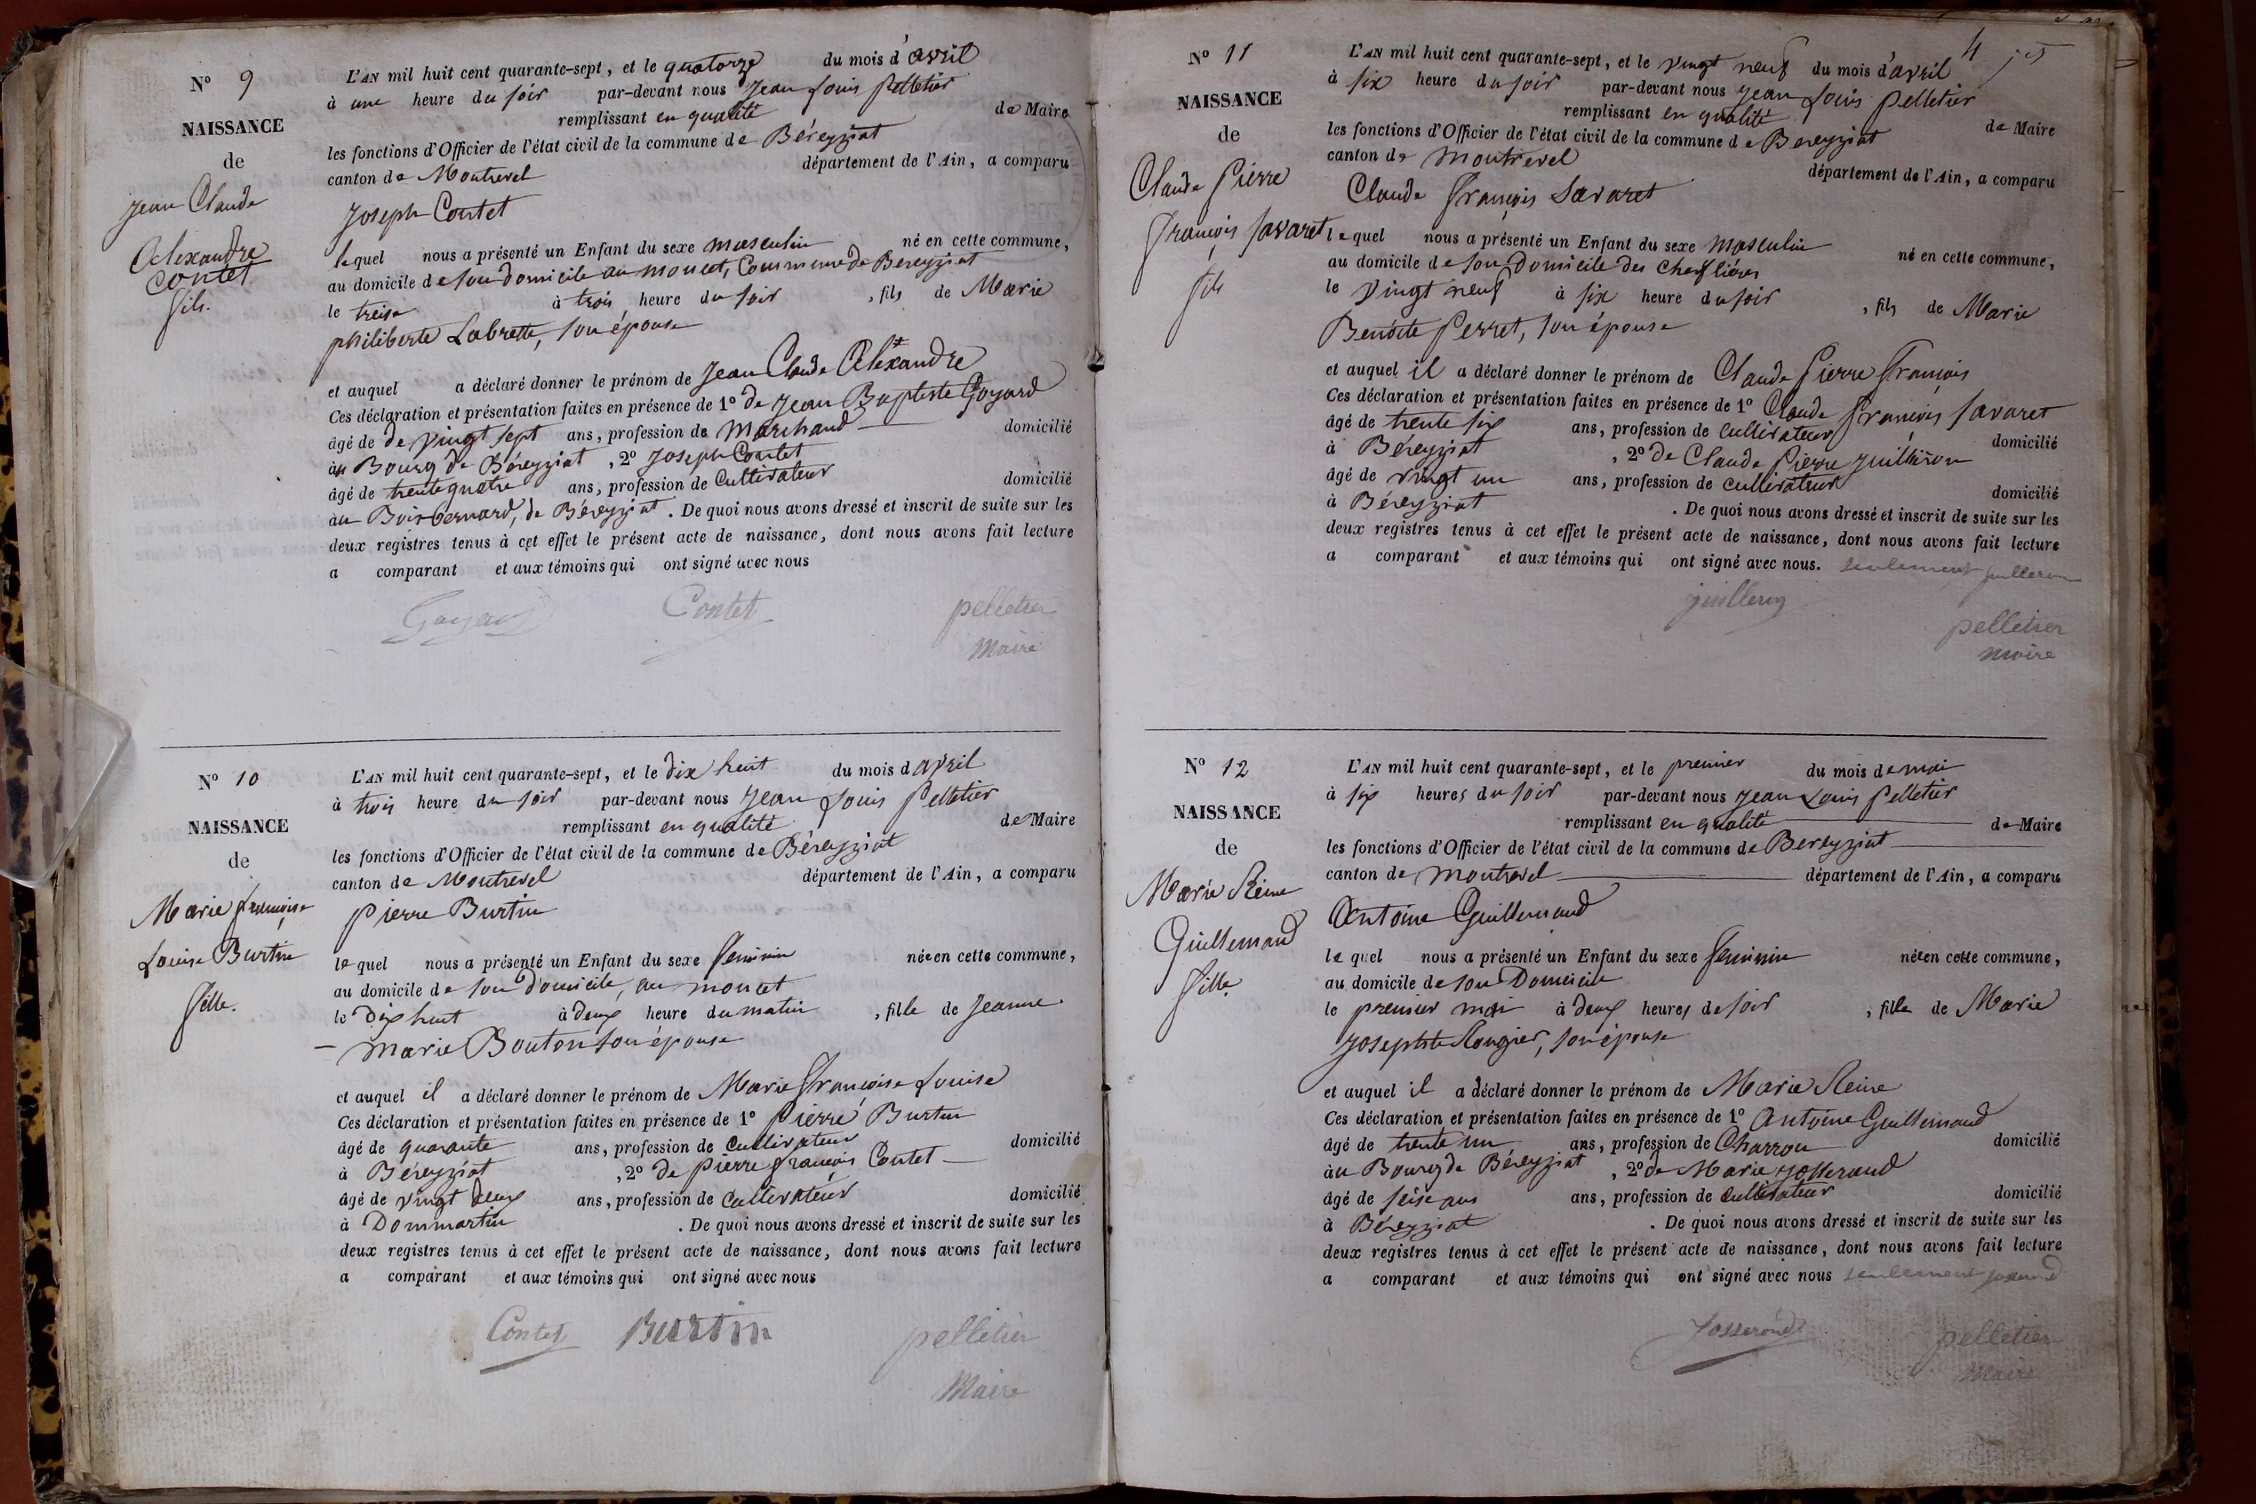 N° 9
NAISSANCE
de
Jean Claude
Alexandre
Contet
fils.
L'AN mil huit cent quarante-sept, et le quatorze du mois d'avril
à une heure du soir par-devant nous Jean Louis Pelletier
remplissant en qualité de Maire
les fonctions d'Officier de l'état civil de la commune de Béreyziat
canton de Montrevel département de l'Ain, a comparu
Joseph Contet
lequel nous a présenté un Enfant du sexe masculin né en cette commune,
au domicile de son domicile au moncet, Commune de Béreyziat
le treise à trois heure du soir, fils de Marie
philiberte Labrette, son épouse
et auquel a déclaré donner le prénom de Jean Claude Alexandre
Ces déclaration et présentation faites en présence de 1° de Jean Baptiste Goyard
âgé de de vingt sept ans, profession de Marchand domicilié
au Bourg de Béreyziat, 2° Joseph Contet
âgé de trente quatre ans, profession de Cultivateur domicilié
au Boisbernard, de Béreyziat. De quoi nous avons dressé et inscrit de suite sur les
deux registres tenus à cet effet le présent acte de naissance, dont nous avons fait lecture
a comparant et aux témoins qui ont signé avec nous
Goyard Contet pelletier
Maire
N° 10
NAISSANCE
de
Marie françoise
Louise Burtin
fille.
L'AN mil huit cent quarante-sept, et le dix huit du mois d avril
à trois heure du soir par-devant nous Jean Louis Pelletier
remplissant en qualité de Maire
les fonctions d'Officier de l'état civil de la commune de Béreyziat
canton de Montrevel département de l'Ain, a comparu
Pierre Burtin
lequel nous a présenté un Enfant du sexe feminin née en cette commune,
au domicile de son domicile, au moncet
le Dix huit à deux heure du matin, fille de Jeanne
Marie Bouton son épouse
et auquel il a déclaré donner le prénom de Marie Françoise Louise
Ces déclaration et présentation faites en présence de 1° Pierre Burtin
âgé de quarante ans, profession de Cultivateur domicilié
à Béreyziat, 2° de Pierre françois Contet
âgé de vingt deux ans, profession de Cultivateur domicilié
à Dommartin. De quoi nous avons dressé et inscrit de suite sur les
deux registres tenus à cet effet le présent acte de naissance, dont nous avons fait lecture
a comparant et aux témoins qui ont signé avec nous
Contet Burtin pelletier
Maire
4
N° 11
NAISSANCE
de
Claude Pierre
François Savaret
fils
L'AN mil huit cent quarante-sept, et le vingt neuf du mois d'avril
à six heure du soir par-devant nous Jean Louis Pelletier
remplissant en qualité de Maire
les fonctions d'Officier de l'état civil de la commune de Béreyziat
canton de Montrevel département de l'Ain, a comparu
Claude François Savaret
lequel nous a présenté un Enfant du sexe masculin né en cette commune,
au domicile de son Domicile des
le vingt neuf à six heure du soir, fils de Marie
Benoite Perret, son épouse
et auquel il a déclaré donner le prénom de Claude Pierre François
Ces déclaration et présentation faites en présence de 1° Claude François Savaret
âgé de trente six ans, profession de Cultivateur domicilié
à Béreyziat, 2° de Claude Pierre
âgé de vingt un ans, profession de Cultivateur domicilié
à Béreyziat. De quoi nous avons dressé et inscrit de suite sur les
deux registres tenus à cet effet le présent acte de naissance, dont nous avons fait lecture
a comparant et aux témoins qui ont signé avec nous. seulement
pelletier
maire
N° 12
NAISSANCE
de
Marie Reine
Guillemaud
fille.
L'AN mil huit cent quarante-sept, et le premier du mois de mai
à six heures du soir par-devant nous Jean Louis Pelletier
remplissant en qualité de Maire
les fonctions d'Officier de l'état civil de la commune de Béreyziat
canton de Montrevel département de l'Ain, a comparu
Antoine Guillemaud
lequel nous a présenté un Enfant du sexe feminin née en cette commune,
au domicile de son Domicile
le premier mai à deux heures de soir, fille de Marie
Josephte Rougier, son épouse
et auquel il a déclaré donner le prénom de Marie Reine
Ces déclaration et présentation faites en présence de 1° Antoine Guillemaud
âgé de trente un ans, profession de Charron domicilié
au Bourg de Béreyziat, 2° de Marie Josserand
âgé de seise ans ans, profession de Cultivateur domicilié
à Béreyziat. De quoi nous avons dressé et inscrit de suite sur les
deux registres tenus à cet effet le présent acte de naissance, dont nous avons fait lecture
a comparant et aux témoins qui ont signé avec nous seulement josserand
Josserand pelletier
maire